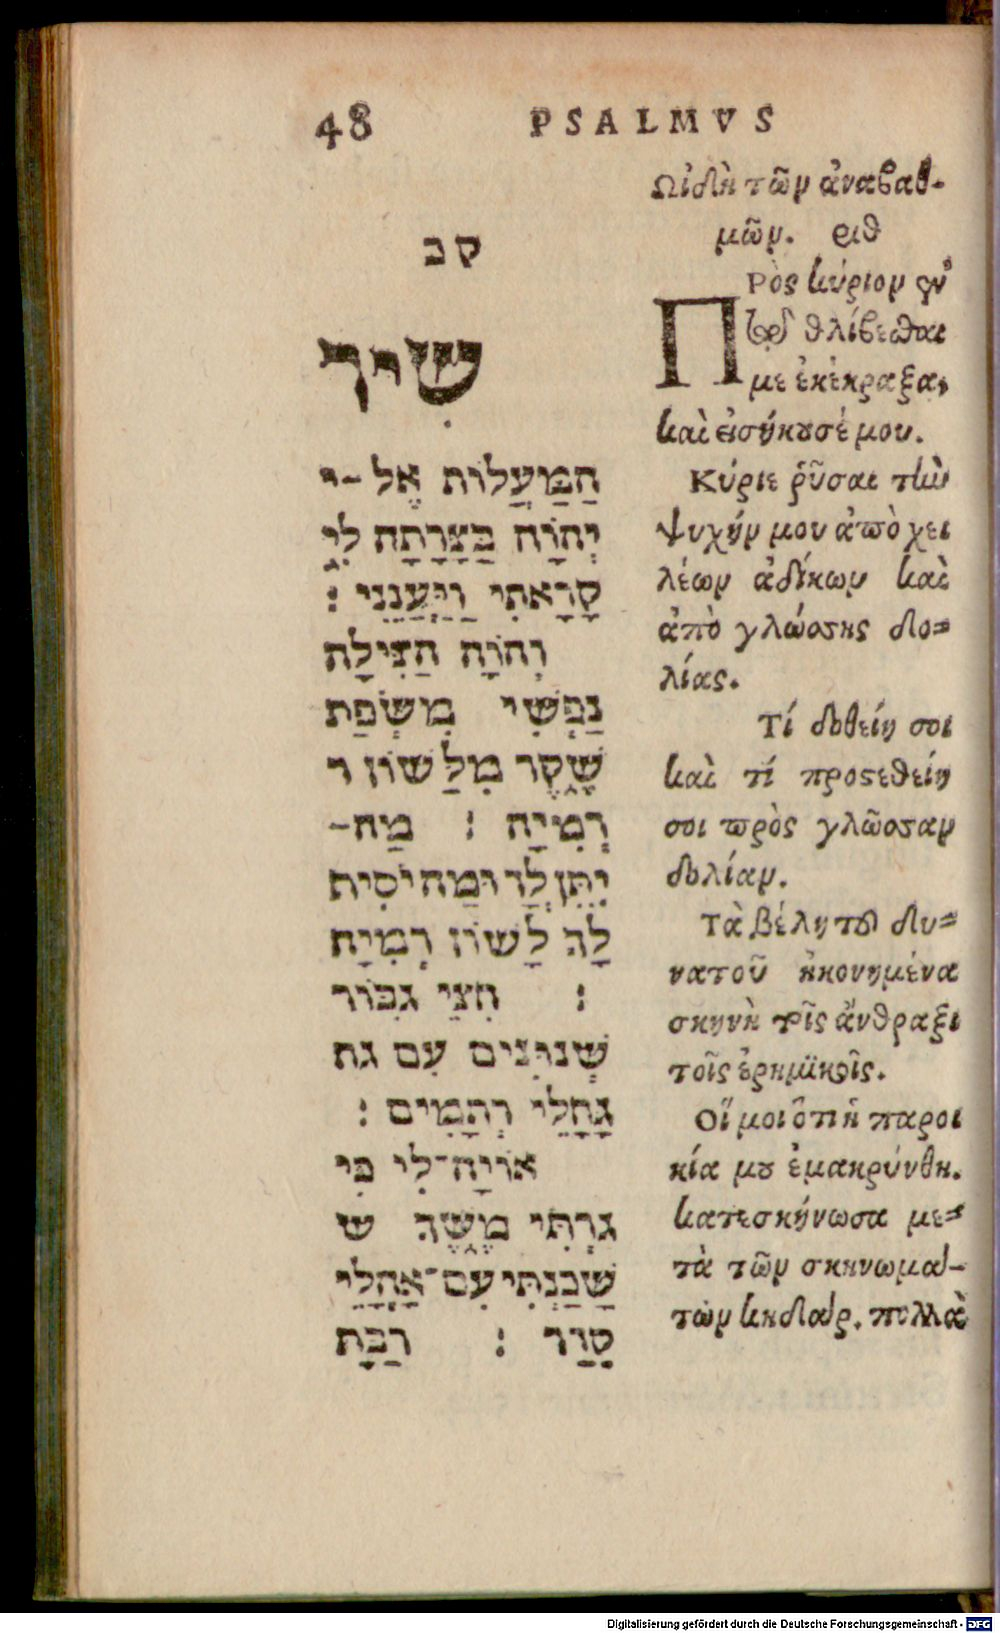 48 PSALMVS
קב
שיר
הַמַּעֲלוֹת אֶל-י
יְהוָֹה בַּצָּרָתָה לִּי
קָרָאתִי וַיַּעֲנֵנִי :
יְהוָֹה הַצִּילָה
נַפְשִׁי מִשְּׂפַת
שֶׁקֶר מִלָּשׁוֹן ר
רְמִיָּה : מַה-
יִּתֵּן לְךָ וּמַה יֹּסִיף
לָךְ לָשׁוֹן רְמִיָּה
: חִצֵּי גִבּוֹר
שְׁנוּנִים עִם גח
גַּחֲלֵי רְתָמִים :
אוֹיָה־לִי כִּי
גַרְתִּי מֶשֶׁךְ ש
שָׁכַנְתִּי עִם־אָהֳלֵי
קֵדָר : רַבַּת
Ωἰδὴ τῶν ἀναβαθ-
μῶν. ριθ
ΠΡὸς κύριον ἐν
τῷ θλίβεσθαι
με ἐκέκραξα,
καὶ εἰσήκουσέ μου.
Κύριε ῥῦσαι τὴν
ψυχήν μου ἀπὸ χει
λέων ἀδίκων καὶ
ἀπὸ γλώσσης δο=
λίας.
Τί δοθείη σοι
καὶ τί προστεθείη
σοι πρὸς γλῶσσαν
δολίαν.
Τὰ βέλη τοῦ δυ=
νατοῦ ἠκονημένα
σκηνὴ τοῖς ἄνθραξι
τοῖς ἐρημικοῖς.
Οἴ μοι ὅτι ἡ παροι
κία μου ἐμακρύνθη.
κατεσκήνωσα με=
τὰ τῶν σκηνωμά-
των κηδάρ. πολλὰ
Digitalisierung gefördert durch die Deutsche Forschungsgemeinschaft - DFG